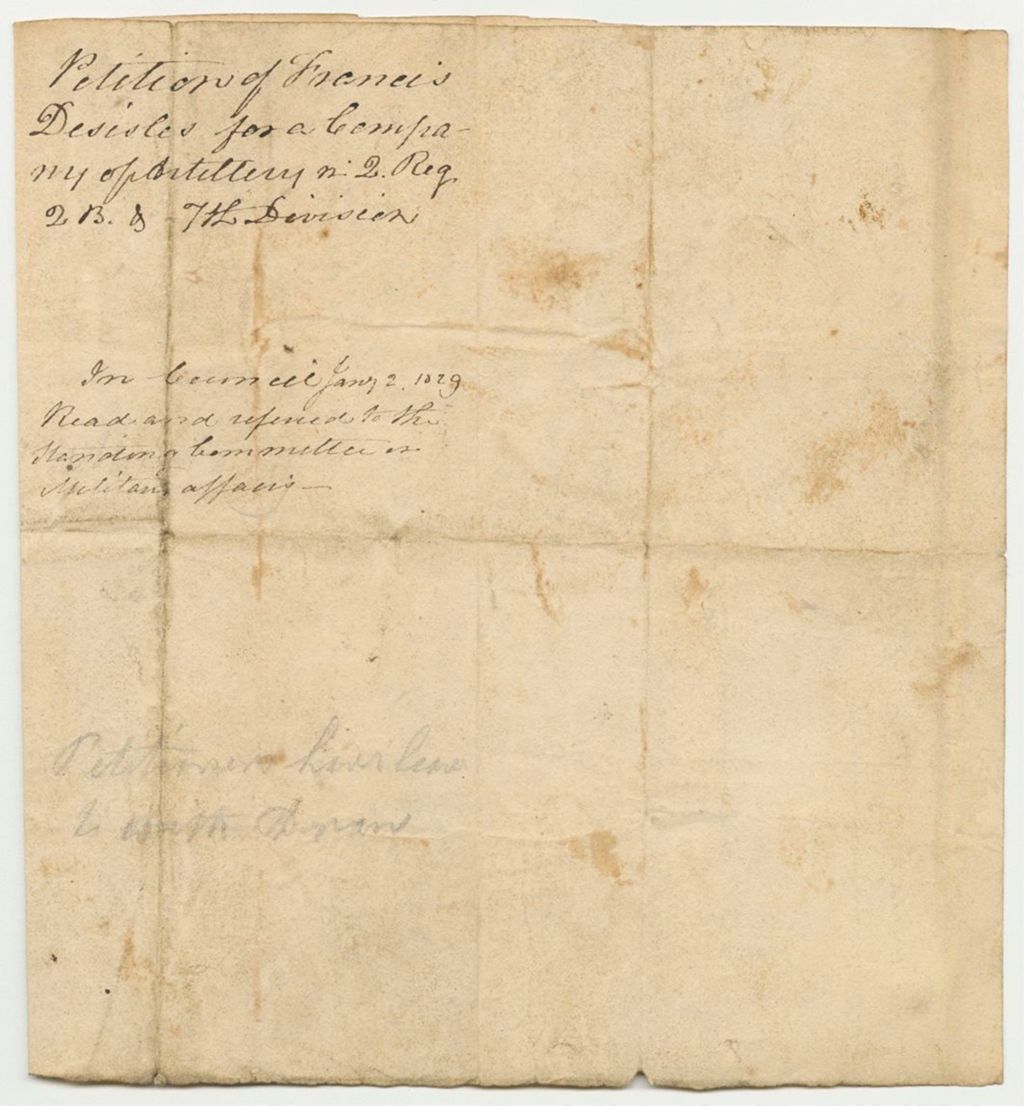 Petition of Francis
Desisles for a Compa-
ny of Artillery in 2. Reg.
2 B. & 7th Division
In Council Jany 2. 1829
Read and referred to the
Standing Committee on
Military affairs—
Petitioners have leave
to with Draw